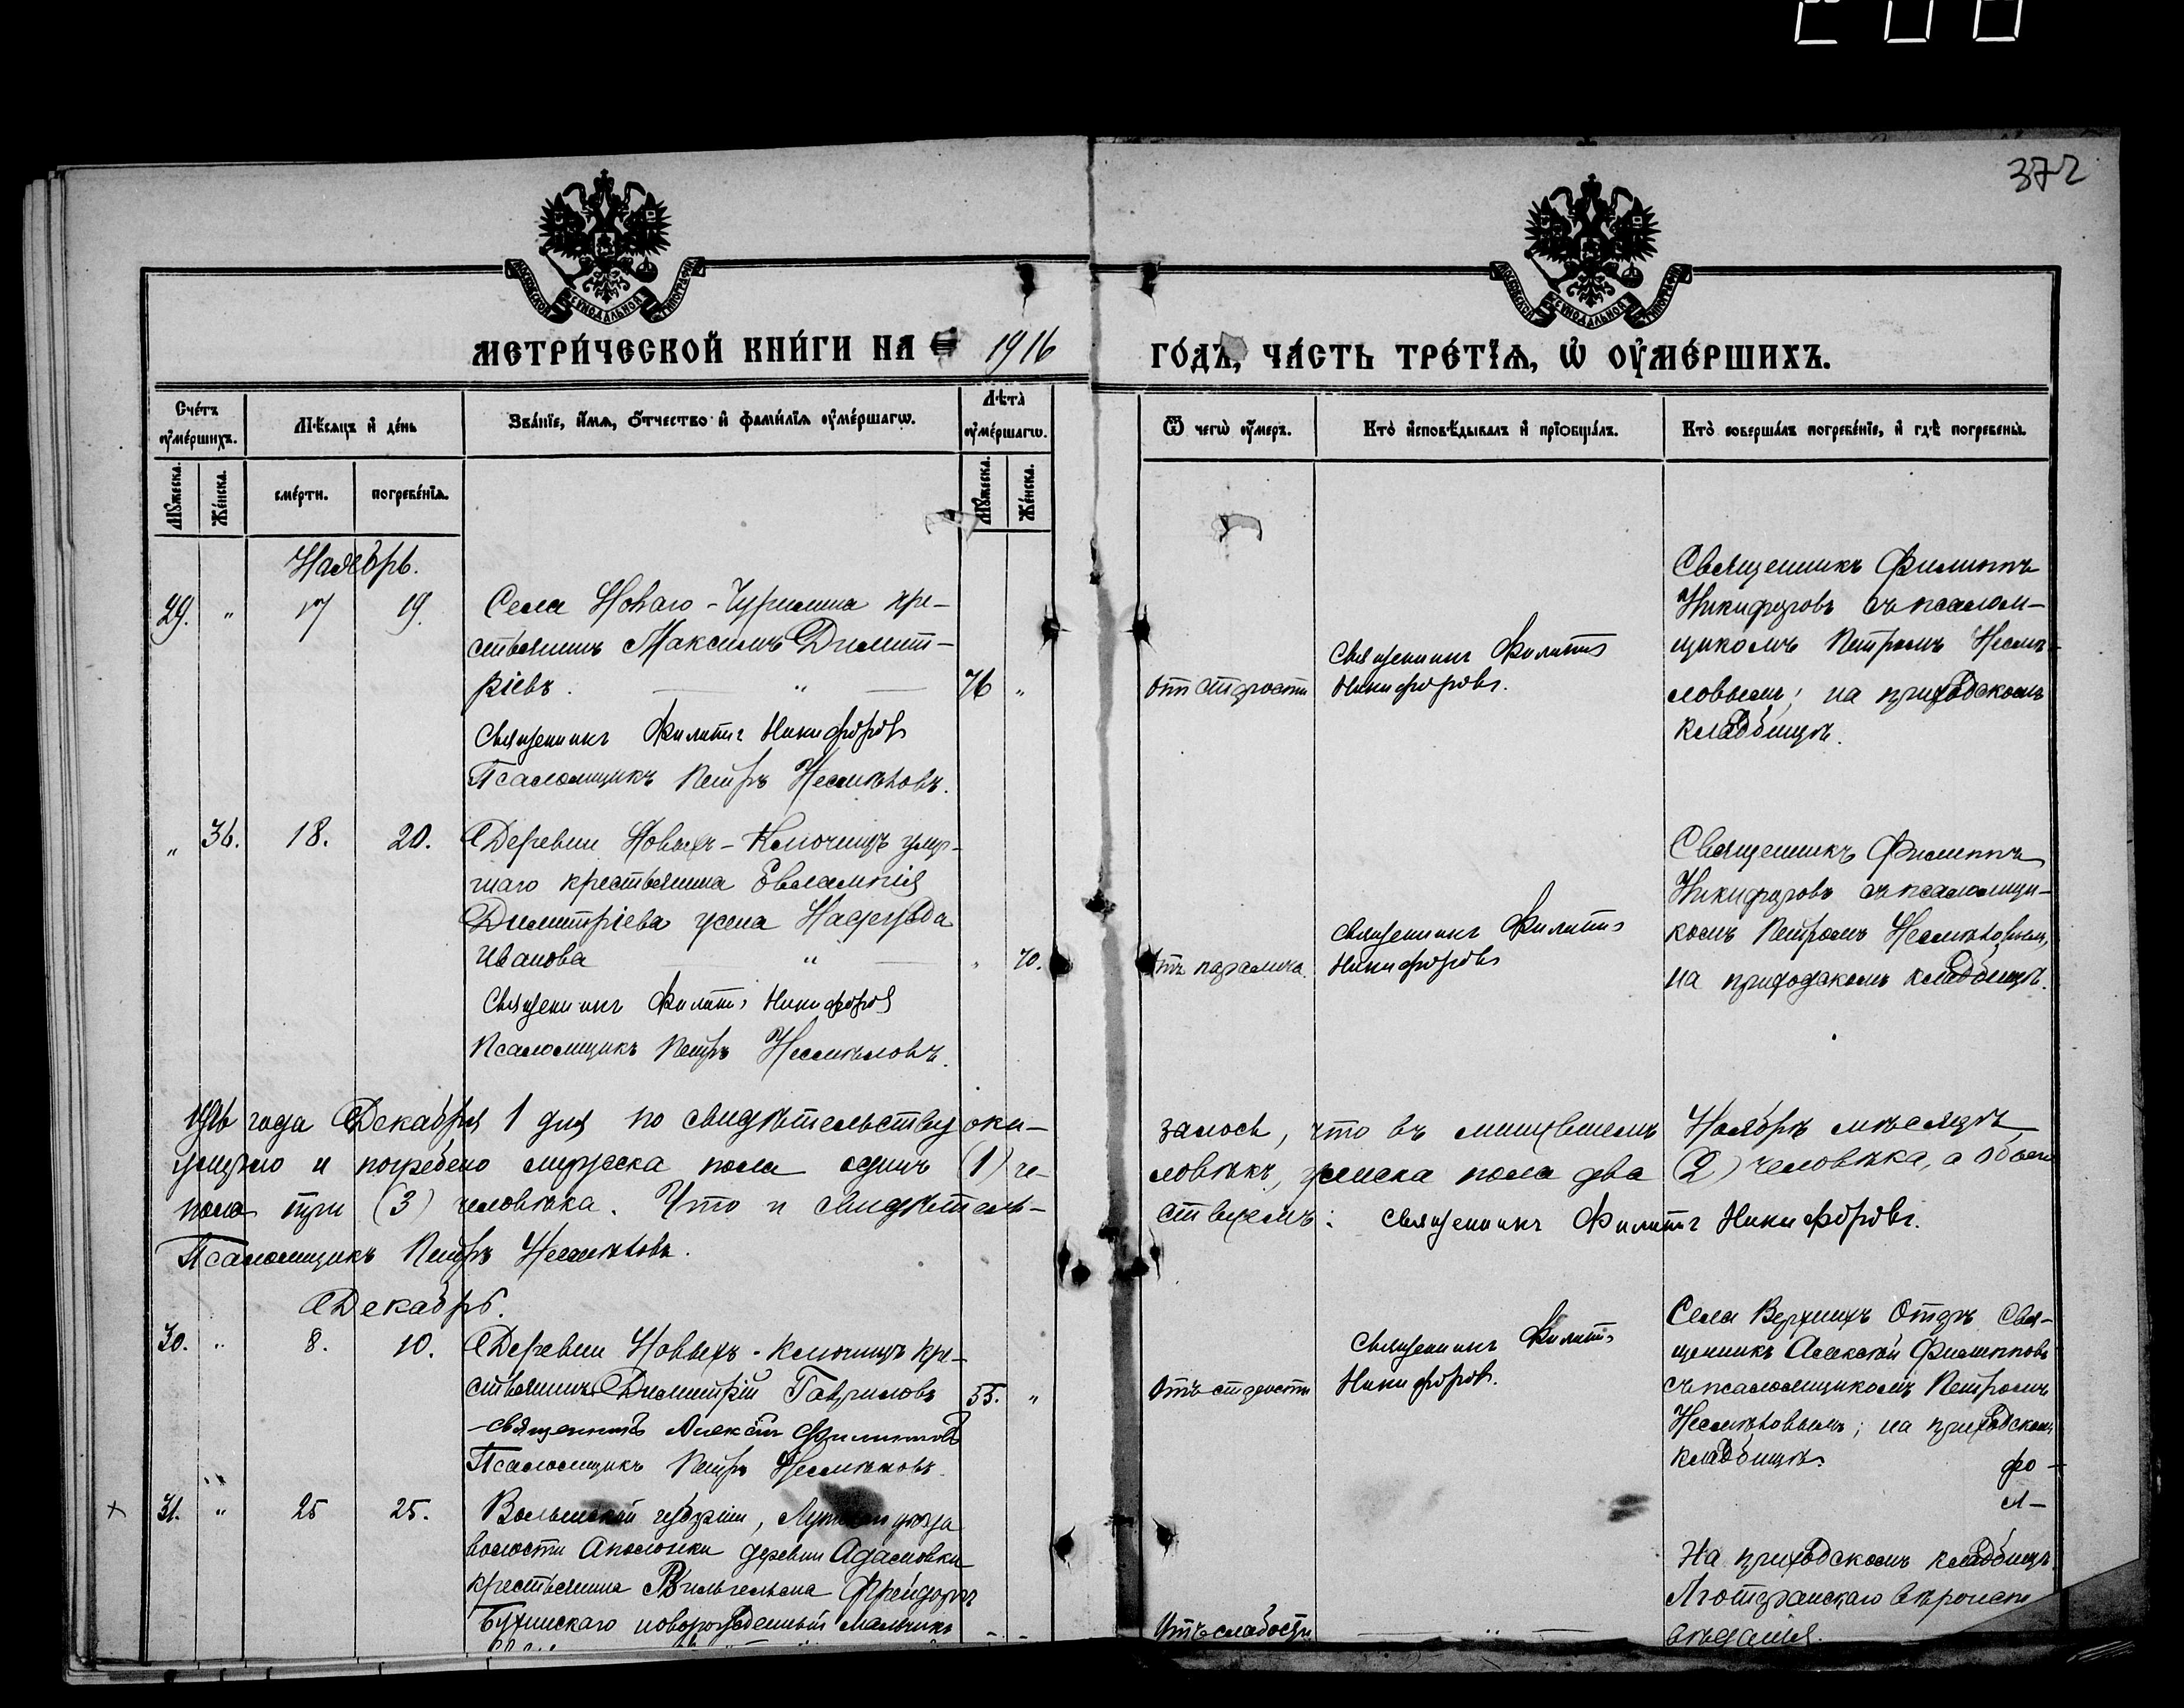 372
МОСКОВСКОЙ СУНОДАЛЬНОЙ ТИПОГРАФIИ
МОСКОВСКОЙ СУНОДАЛЬНОЙ ТИПОГРАФIИ
МЕТРИ́ЧЕСКОЙ КНИ́ГИ НА 1916 ГО́ДЪ, ЧА́СТЬ ТРЕ́ТЇѦ, Ѡ҆ ОУ҆МЕ́РШИХЪ.
Сче́тъ оу҆ме́ршихъ.
Мѣ́сяцъ и҆ де́нь
Зва́нїе, и҆́мѧ, ѻ҆́тчество и҆ фами́лїѧ оу҆ме́ршагѡ.
Лѣта̀ оу҆ме́ршагѡ.
Ѿ чегѡ̀ оу҆́меръ.
Кто̀ и҆сповѣ́дывалъ и҆ прїѡбща́лъ.
Кто̀ соверша́лъ погребе́нїе, и҆ гдѣ̀ погребены̀.
Мꙋ́жеска.
Же́нска.
сме́рти.
погребе́нїѧ.
Мꙋ́жеска.
Же́нска.
Наябрь.
29. " 17 19.
Села Новаго-Чурилина кре-
стьянинъ Максимъ Димит-
ріевъ. — " — 76 "
Священникъ Филиппъ Никифоровъ
Псаломщикъ Петръ Несмѣловъ.
отъ старости
Священникъ Филиппъ
Никифоровъ.
Священникъ Филиппъ
Никифоровъ съ псалом-
щикомъ Петромъ Несмѣ-
ловымъ; на приходскомъ
кладбищѣ.
" 36. 18. 20.
Деревни Новыхъ-Ключищъ умер-
шаго крестьянина Евлампія
Димитріева жена Надежда
Иванова — " — " 70.
Священникъ Филиппъ Никифоровъ
Псаломщикъ Петръ Несмѣловъ.
отъ паралича.
Священникъ Филиппъ
Никифоровъ
Священникъ Филиппъ
Никифоровъ съ псаломщи-
комъ Петромъ Несмѣловымъ,
на приходскомъ кладбищѣ.
1916 года Декабря 1 дня по свидѣтельству ока- залось, что въ минувшемъ Ноябрѣ мѣсяцѣ
умерло и погребено мужеска пола одинъ (1) че- ловѣкъ, женска пола два (2) человѣка, а обоего
пола три (3) человѣка. Что и свидѣтель- ствуемъ: Священникъ Филиппъ Никифоровъ.
Псаломщикъ Петръ Несмѣловъ.
Декабрь.
30. " 8. 10.
Деревни Новыхъ-Ключищъ кре-
стьянинъ Димитрій Гавриловъ 55. "
священникъ Алексій Филипповъ
Псаломщикъ Петръ Несмѣловъ.
отъ старости
Священникъ Филиппъ
Никифоровъ.
Села Верхнихъ Отаръ Свя-
щенникъ Алексѣй Филипповъ
съ псаломщикомъ Петромъ
Несмѣловымъ; на приходскомъ
кладбищѣ.
фо-
л-
x 31. " 25 25.
Волынской губерніи, уѣзда
волости деревни Адамовки
крестьянина Вильгельма
новорожденный мальчикъ
отъ слабости — " —
На приходскомъ кладбищѣ
Лютеранскаго вѣроисп
вѣданія.